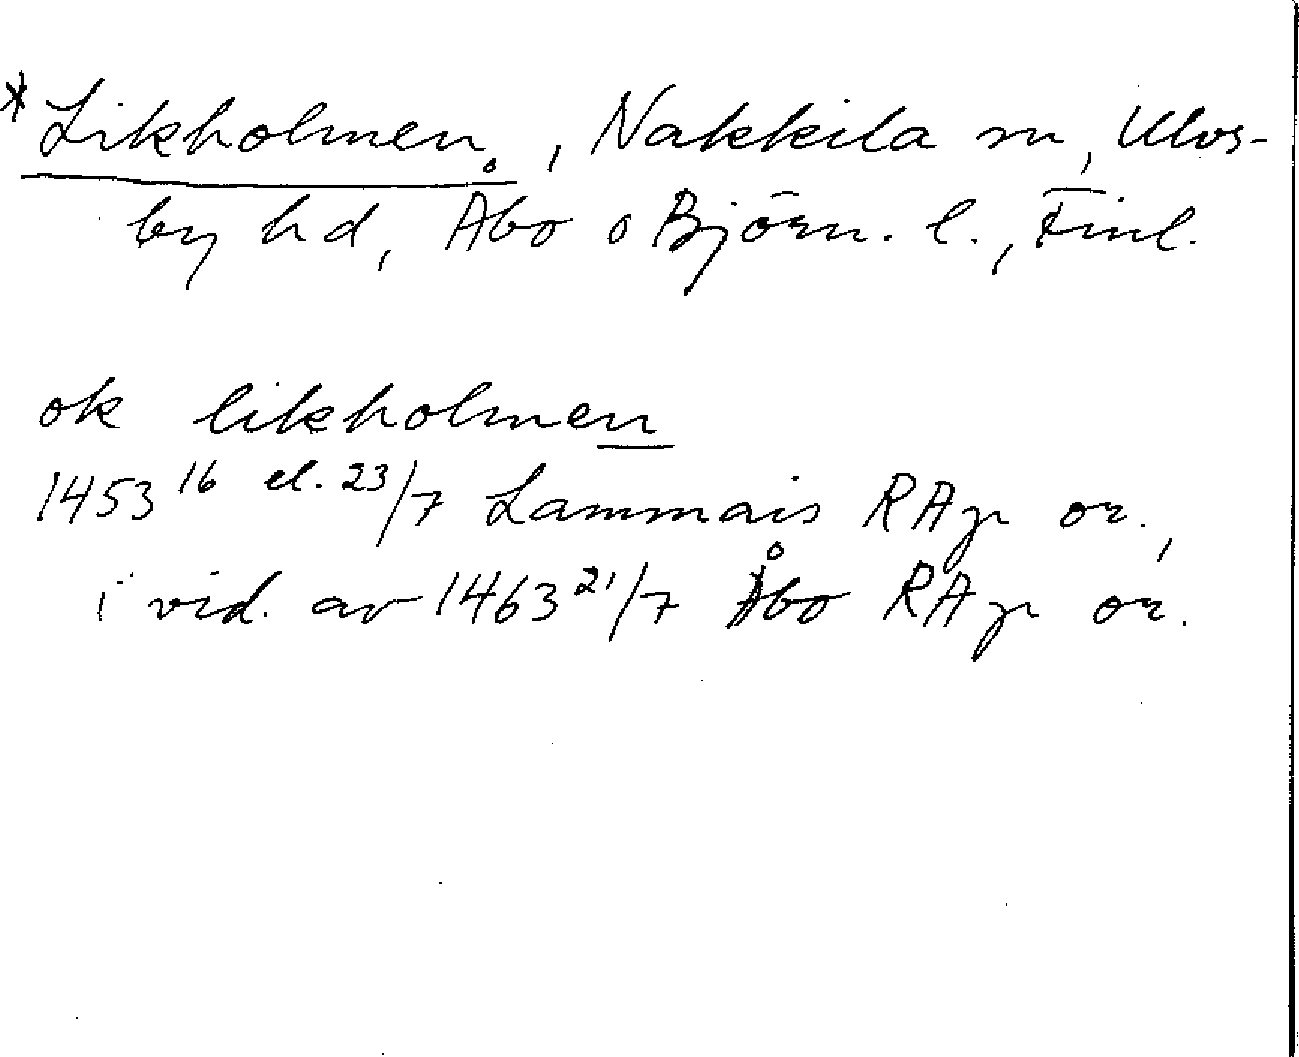 *Likholmen, Nakkila sn, Ulvs-
by hd, Åbo o Björn. l., Finl.
ok likholmen
1453 16 el. 23/7 Lammais RAp or.,
i vid. av 1463 21/7 Åbo RAp or.